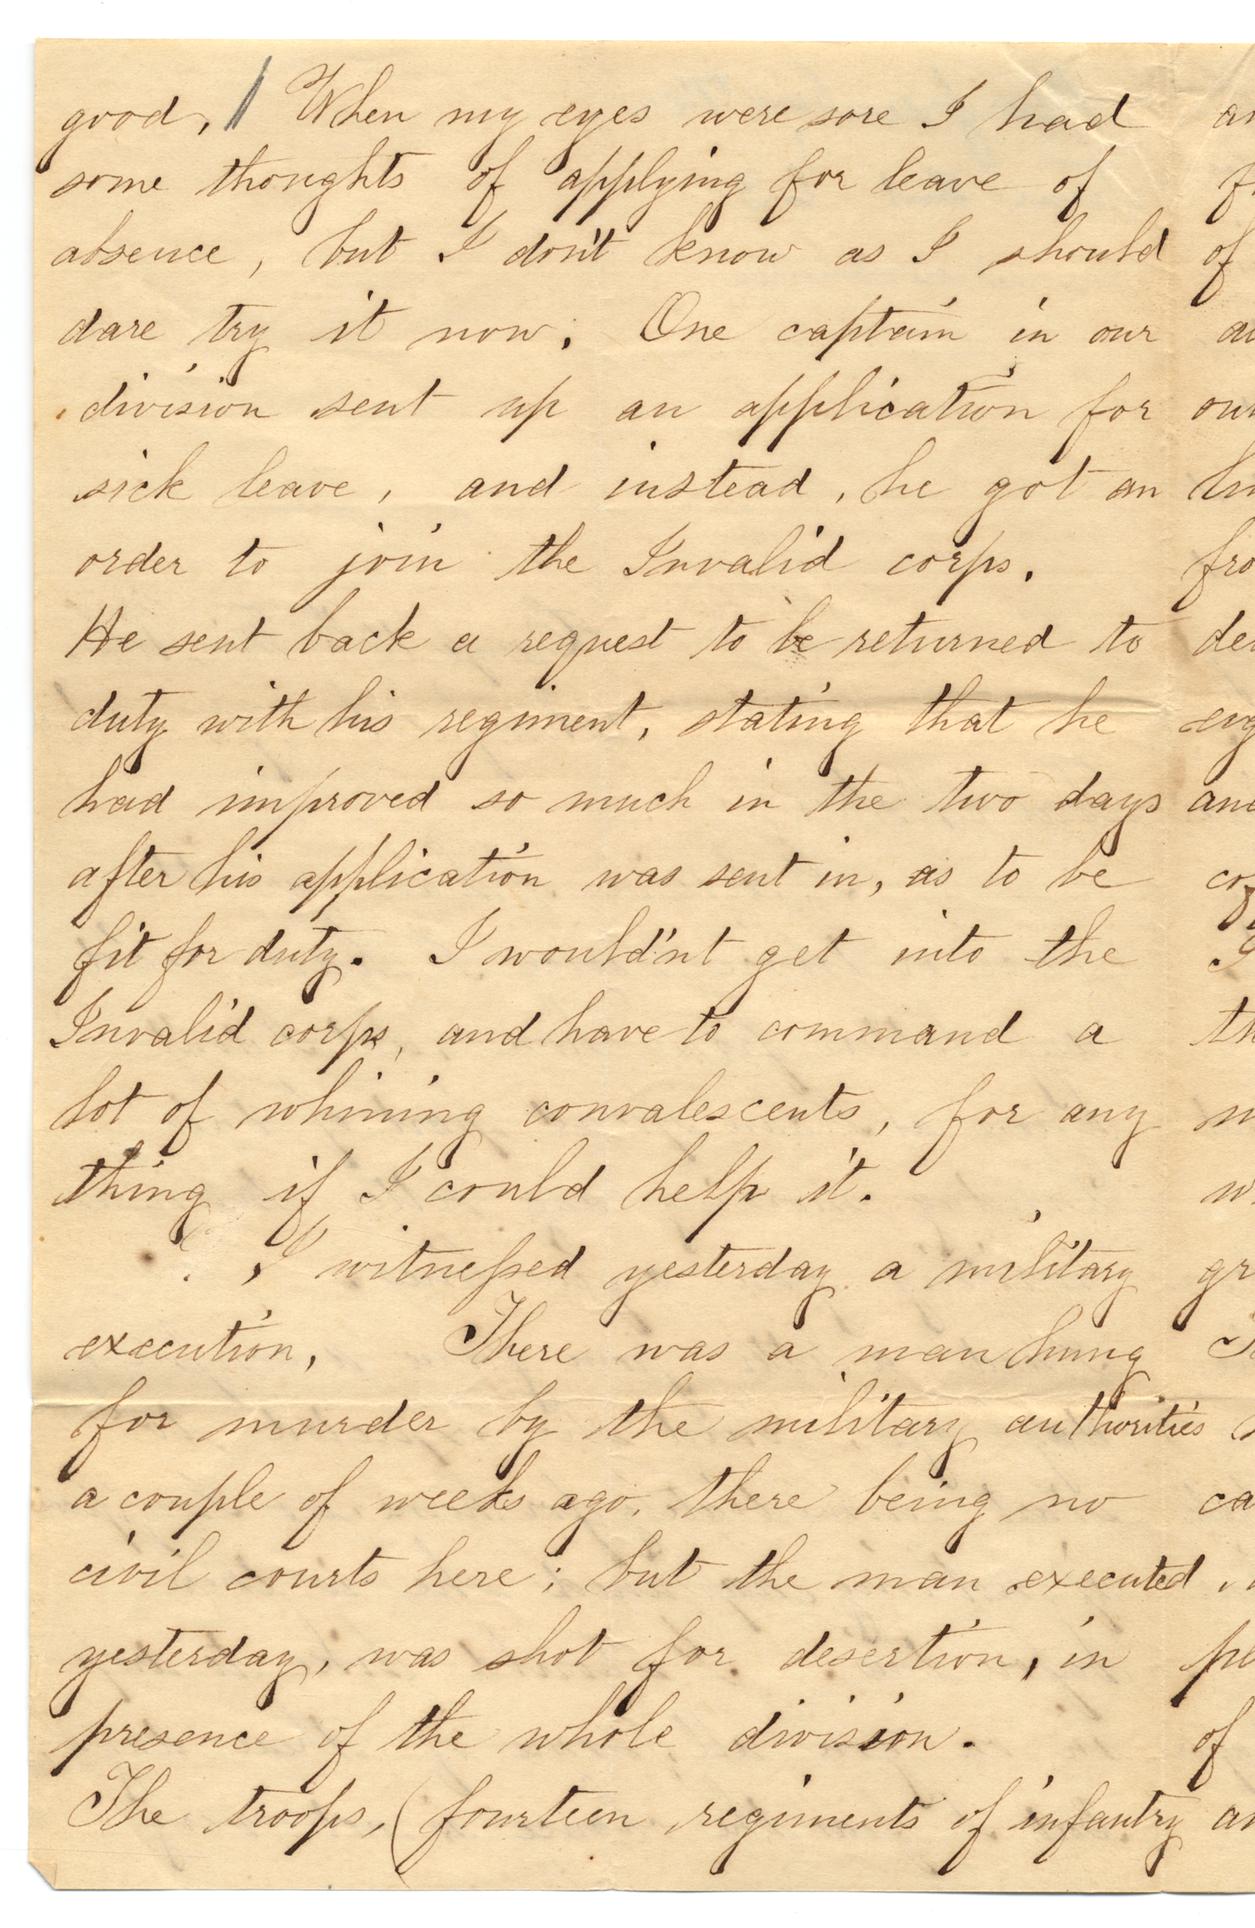 good. When my eyes were sore I had
some thoughts of applying for leave of
absence, but I don't know as I should
dare try it now. One captain in our
division sent up an application for
sick leave, and instead, he got an
order to join the Invalid corps.
He sent back a request to be returned to
duty with his regiment, stating that he
had improved so much in the two days
after his application was sent in, as to be
fit for duty. I would'nt get into the
Invalid corps, and have to command a
lot of whining convalescents, for any
thing if I could help it.
I witnessed yesterday a military
execution, There was a man hung
for murder by the military authorities
a couple of weeks ago, there being no
civil courts here; but the man executed
yesterday, was shot for desertion, in
presence of the whole division.
The troops, (fourteen regiments of infantry
of
of